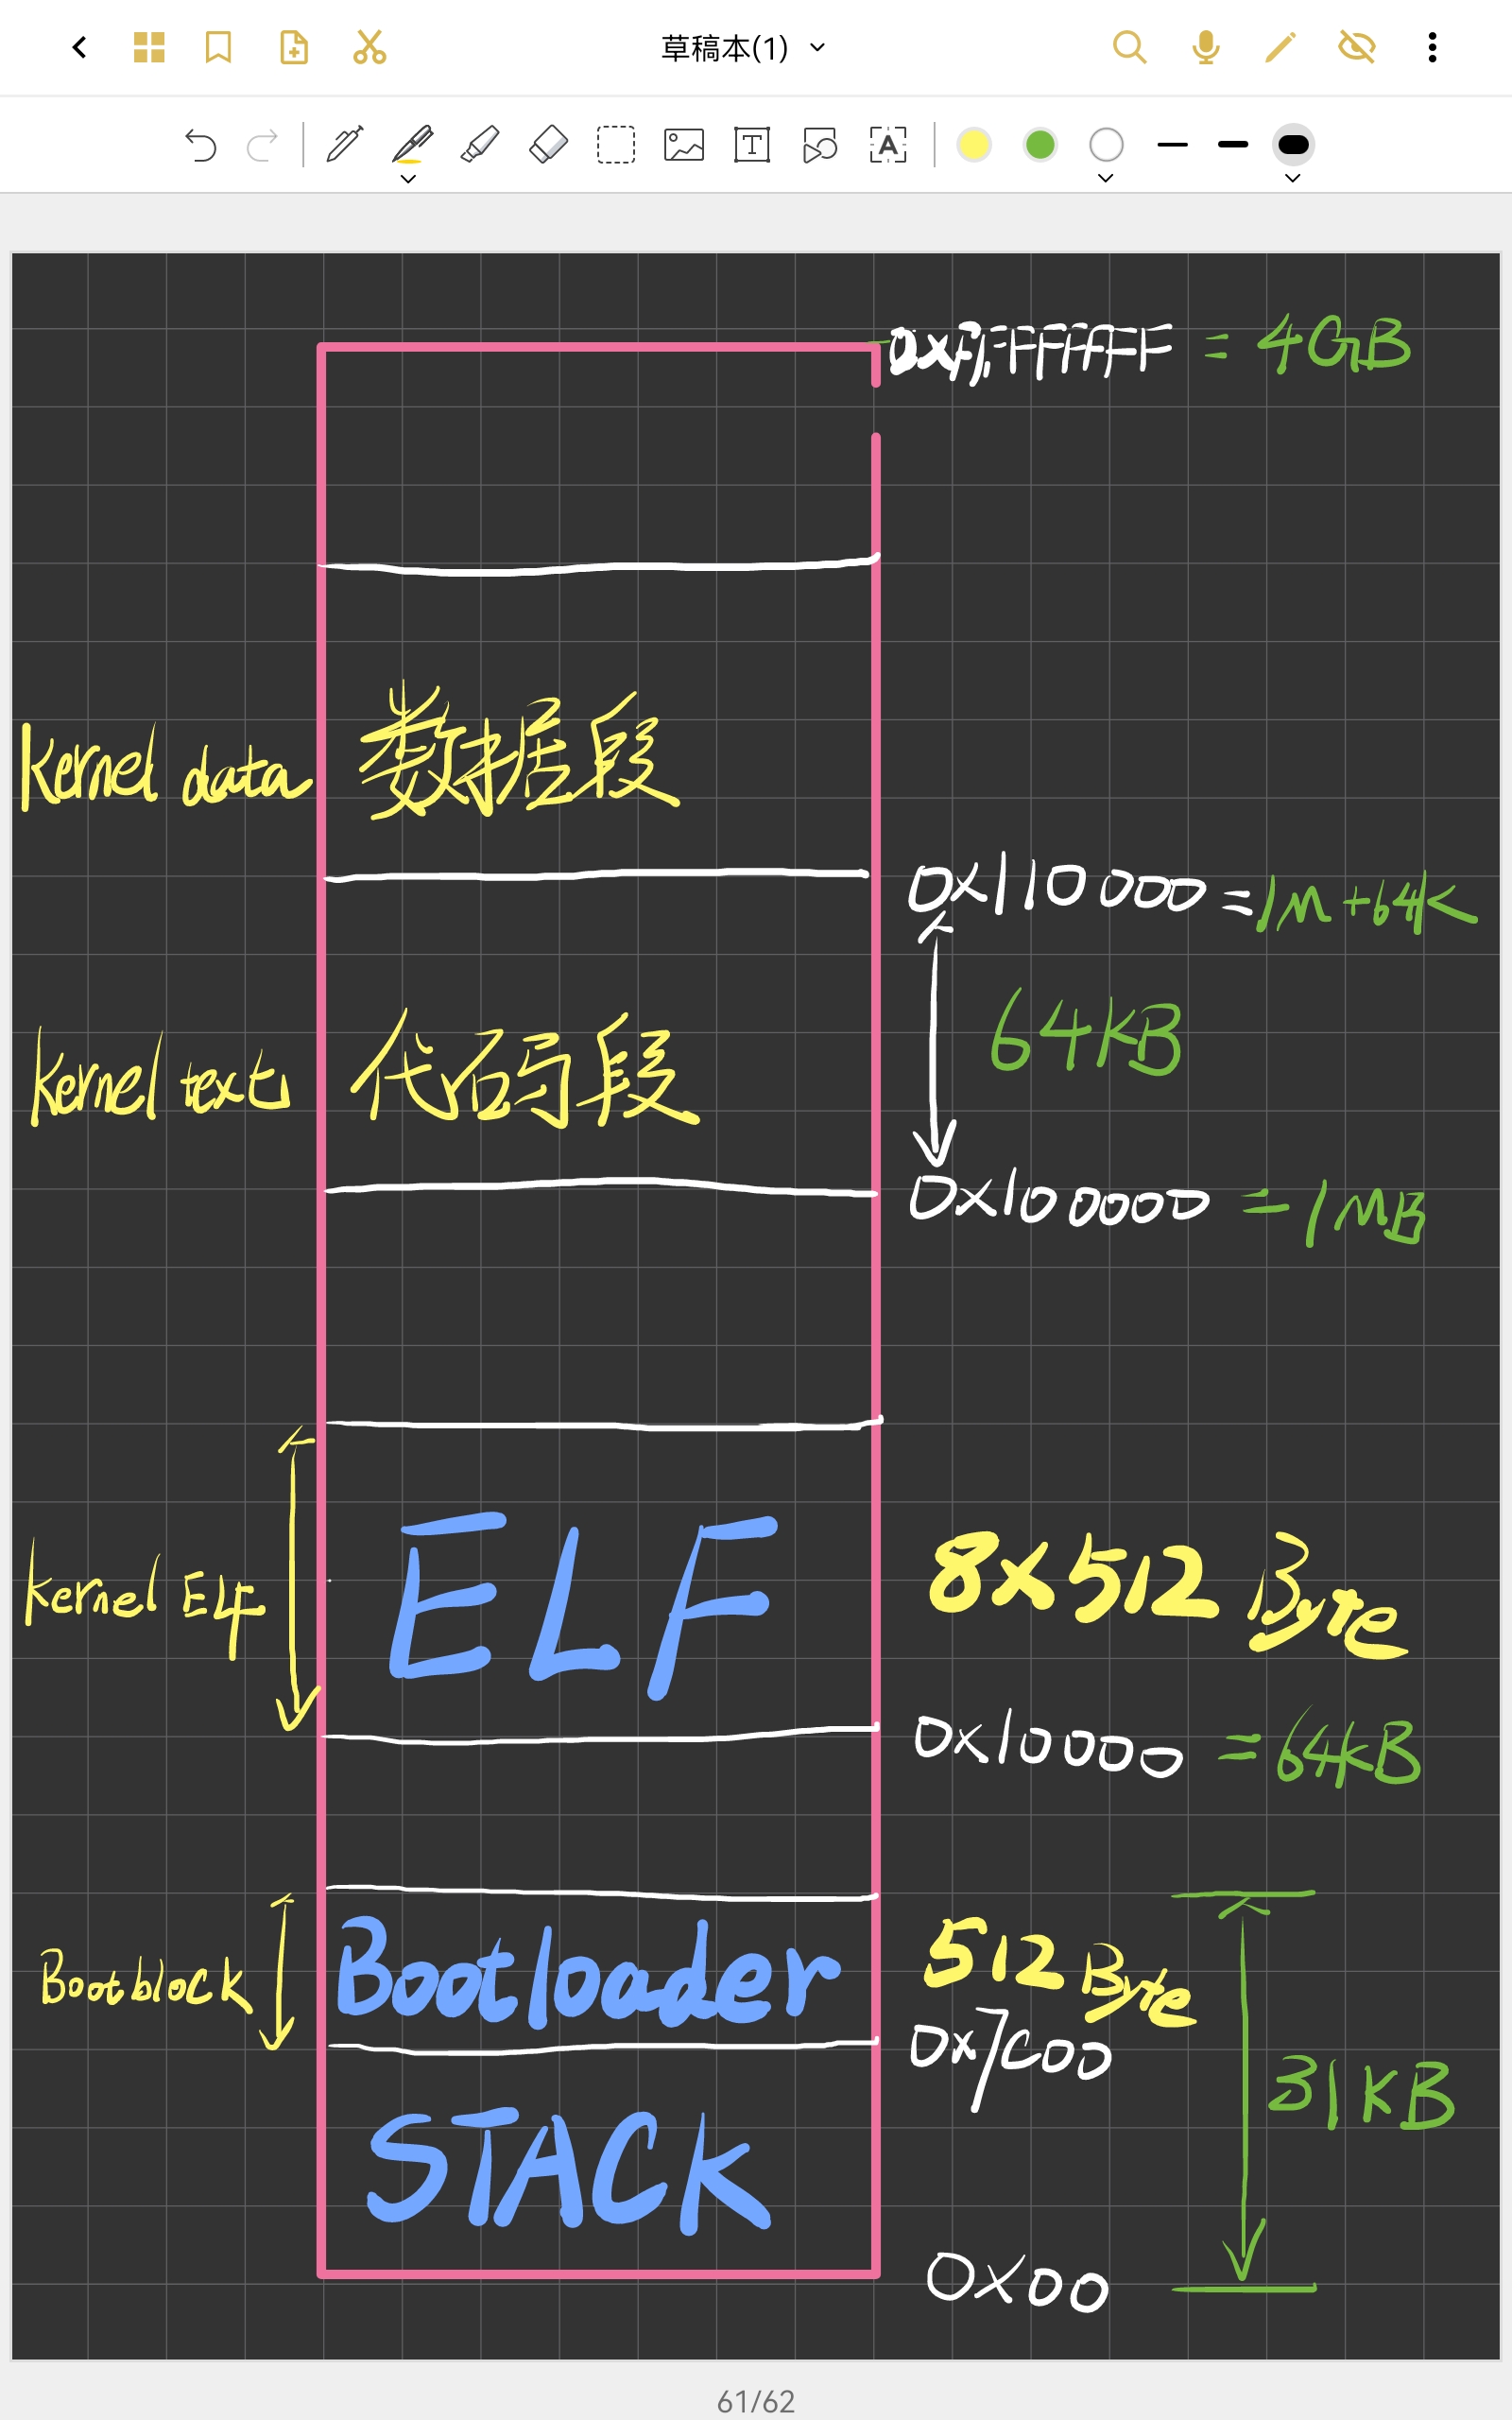 草稿本(1)
= 4GB
kernel data 数据段
0x110000 = 1M+64K
64KB
kernel text 代码段
0x100000 = 1MB
kernel Elf ELF 8x512 Byte
0x10000 = 64KB
Boot block Bootloader 512 Byte
0x7c00
31KB
STACK
0x00
61/62